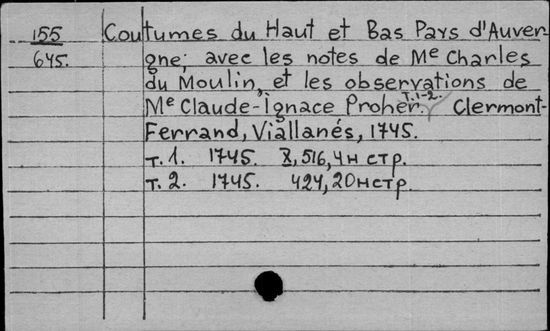 155
645.
Coutumes du Haut et Bas Pays d'Auver-
gne; avec les notes de Me Charles
du Moulin, et les observations de
Me Claude-Ignace Proher. T.1-2. Clermont-
Ferrand, Viallanés, 1745.
т. 1. 1745. X, 516, 4н стр.
т. 2. 1745. 424, 20нстр.